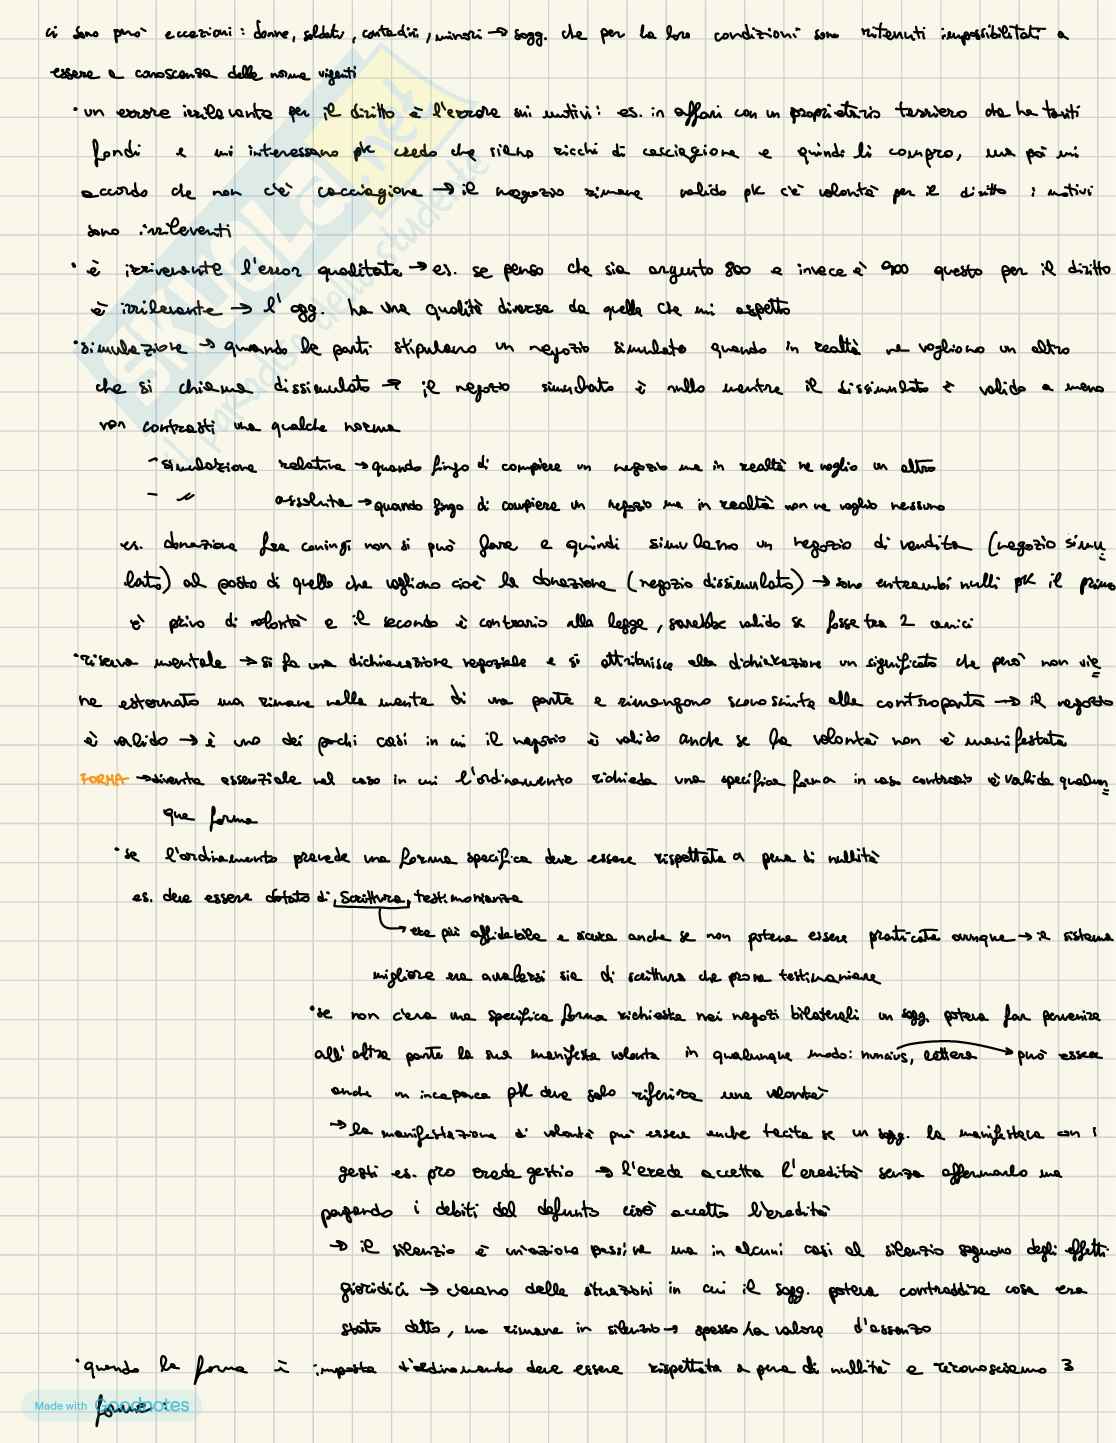 ci sono però eccezioni: donne, soldati, contadini, minori → sogg. che per la loro condizioni sono ritenuti impossibilitati a
essere a conoscenza delle norme vigenti
• un errore irrilevante per il diritto è l'errore sui motivi: es. in affari con un proprietario terriero che ha tanti
fondi e mi interessano pk credo che siano ricchi di cacciagione e quindi li compro, ma poi mi
accordo che non c'è cacciagione → il negozio rimane valido pk c'è volontà per il diritto i motivi
sono irrilevanti
• è irrivenante l'error qualitate → es. se penso che sia argento 800 e invece è 900 questo per il diritto
è irrilevante → l'ogg. ha una qualità diversa da quella che mi aspetto
• simulazione → quando le parti stipulano un negozio simulato quando in realtà ne vogliono un altro
che si chiama dissimulato → il negozio simulato è nullo mentre il dissimulato è valido a meno
non contrasti una qualche norma
- simulazione relativa → quando fingo di compiere un negozio ma in realtà ne voglio un altro
- " assoluta → quando fingo di compiere un negozio ma in realtà non ne voglio nessuno
es. donazione fra coniugi non si può fare e quindi simulano un negozio di vendita (negozio simu
lato) al posto di quello che vogliono cioè la donazione (negozio dissimulato) → sono entrambi nulli pk il primo
è privo di volontà e il secondo è contrario alla legge, sarebbe valido se fosse tra 2 amici
• riserva mentale → si fa una dichiarazione negoziale e si attribuisce alla dichiarazione un significato che però non vie
ne esternato ma rimane nella mente di una parte e rimangono sconosciute alla controparte → il negozio
è valido → è uno dei pochi casi in cui il negozio è valido anche se la volontà non è manifestata
FORMA → diventa essenziale nel caso in cui l'ordinamento richieda una specifica forma in caso contrario è valida qualun
que forma
• se l'ordinamento prevede una forma specifica deve essere rispettata a pena di nullità
es. deve essere dotato di scrittura, testimonianza
→ era più affidabile e sicura anche se non poteva essere praticata ovunque → il sistema
migliore era avalersi sia di scrittura che prova testimoniane
• se non c'era una specifica forma richiesta nei negozi bilaterali un sogg. poteva far pervenire
all'altra parte la sua manifesta volonta in qualunque modo: nuncius, lettera → può essere
anche un incapace pk deve solo riferire una volontà
→ la manifestazione di volontà può essere anche tacita se un sogg. la manifestava con i
gesti es. pro erede gestio → l'erede accetta l'eredità senza affermarlo ma
pagando i debiti del defunto cioè accetta l'eredità
→ il silenzio è un'azione passiva ma in alcuni casi al silenzio seguono degli effetti
giuridici → c'erano delle situazioni in cui il sogg. poteva contraddire cosa era
stato detto, ma rimane in silenzio → spesso ha valore d'assenso
• quando la forma è imposta dall'ordinamento deve essere rispettata a pena di nullità e riconosciamo 3
forme:
Made with Goodnotes